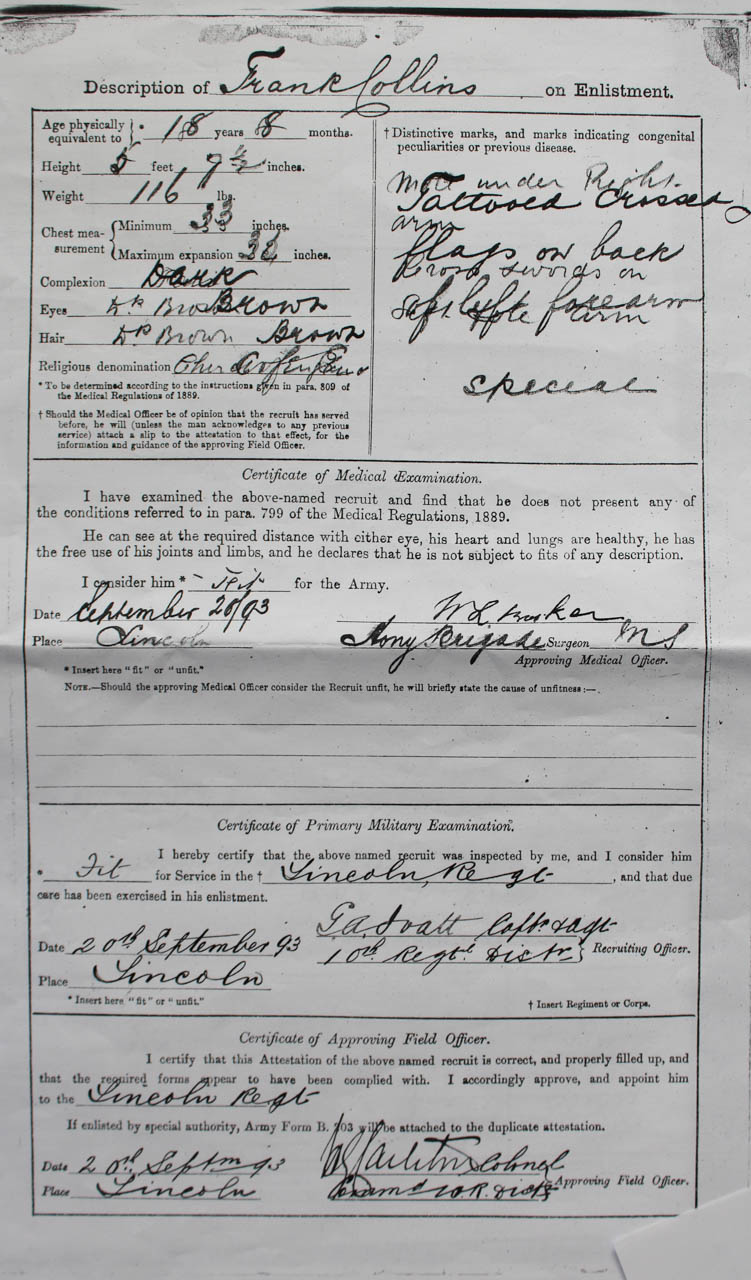 Description of Frank Collins on Enlistment.
Age physically equivalent to } * 18 years 8 months.
Height 5 feet, 7 ½ inches.
Weight 116 lbs.
Chest measurement { Minimum 33 inches.
Maximum expansion inches.
Complexion Dark
Eyes Dk Brown
Hair Dk Brown Brown
Religious denomination
* To be determined according to the instructions given in para. 809 of
the Medical Regulations of 1889.
† Should the Medical Officer be of opinion that the recruit has served
before, he will (unless the man acknowledges to any previous
service) attach a slip to the attestation to that effect, for the
information and guidance of the approving Field Officer.
† Distinctive marks, and marks indicating congenital
peculiarities or previous disease.
Mole under Right
Tattooed Crossed
arm
flags on back
Cross swords on
left forearm
special
Certificate of Medical Examination.
I have examined the above-named recruit and find that he does not present any of
the conditions referred to in para. 799 of the Medical Regulations, 1889.
He can see at the required distance with either eye, his heart and lungs are healthy, he has
the free use of his joints and limbs, and he declares that he is not subject to fits of any description.
I consider him * Fit for the Army.
Date September 20/93
Place Lincoln
Brigade Surgeon
Approving Medical Officer.
* Insert here "fit" or "unfit."
NOTE.—Should the approving Medical Officer consider the Recruit unfit, he will briefly state the cause of unfitness:—
Certificate of Primary Military Examination.
I hereby certify that the above named recruit was inspected by me, and I consider him
* Fit for Service in the † Lincoln Regt, and that due
care has been exercised in his enlistment.
Date 20th September 93
Place Lincoln
10th Regtl Distr } Recruiting Officer.
* Insert here "fit" or "unfit."
† Insert Regiment or Corps.
Certificate of Approving Field Officer.
I certify that this Attestation of the above named recruit is correct, and properly filled up, and
that the required forms appear to have been complied with. I accordingly approve, and appoint him
to the Lincoln Regt
If enlisted by special authority, Army Form B. 203 will be attached to the duplicate attestation.
Date 20th Septm 93
Place Lincoln
Colonel
Approving Field Officer.